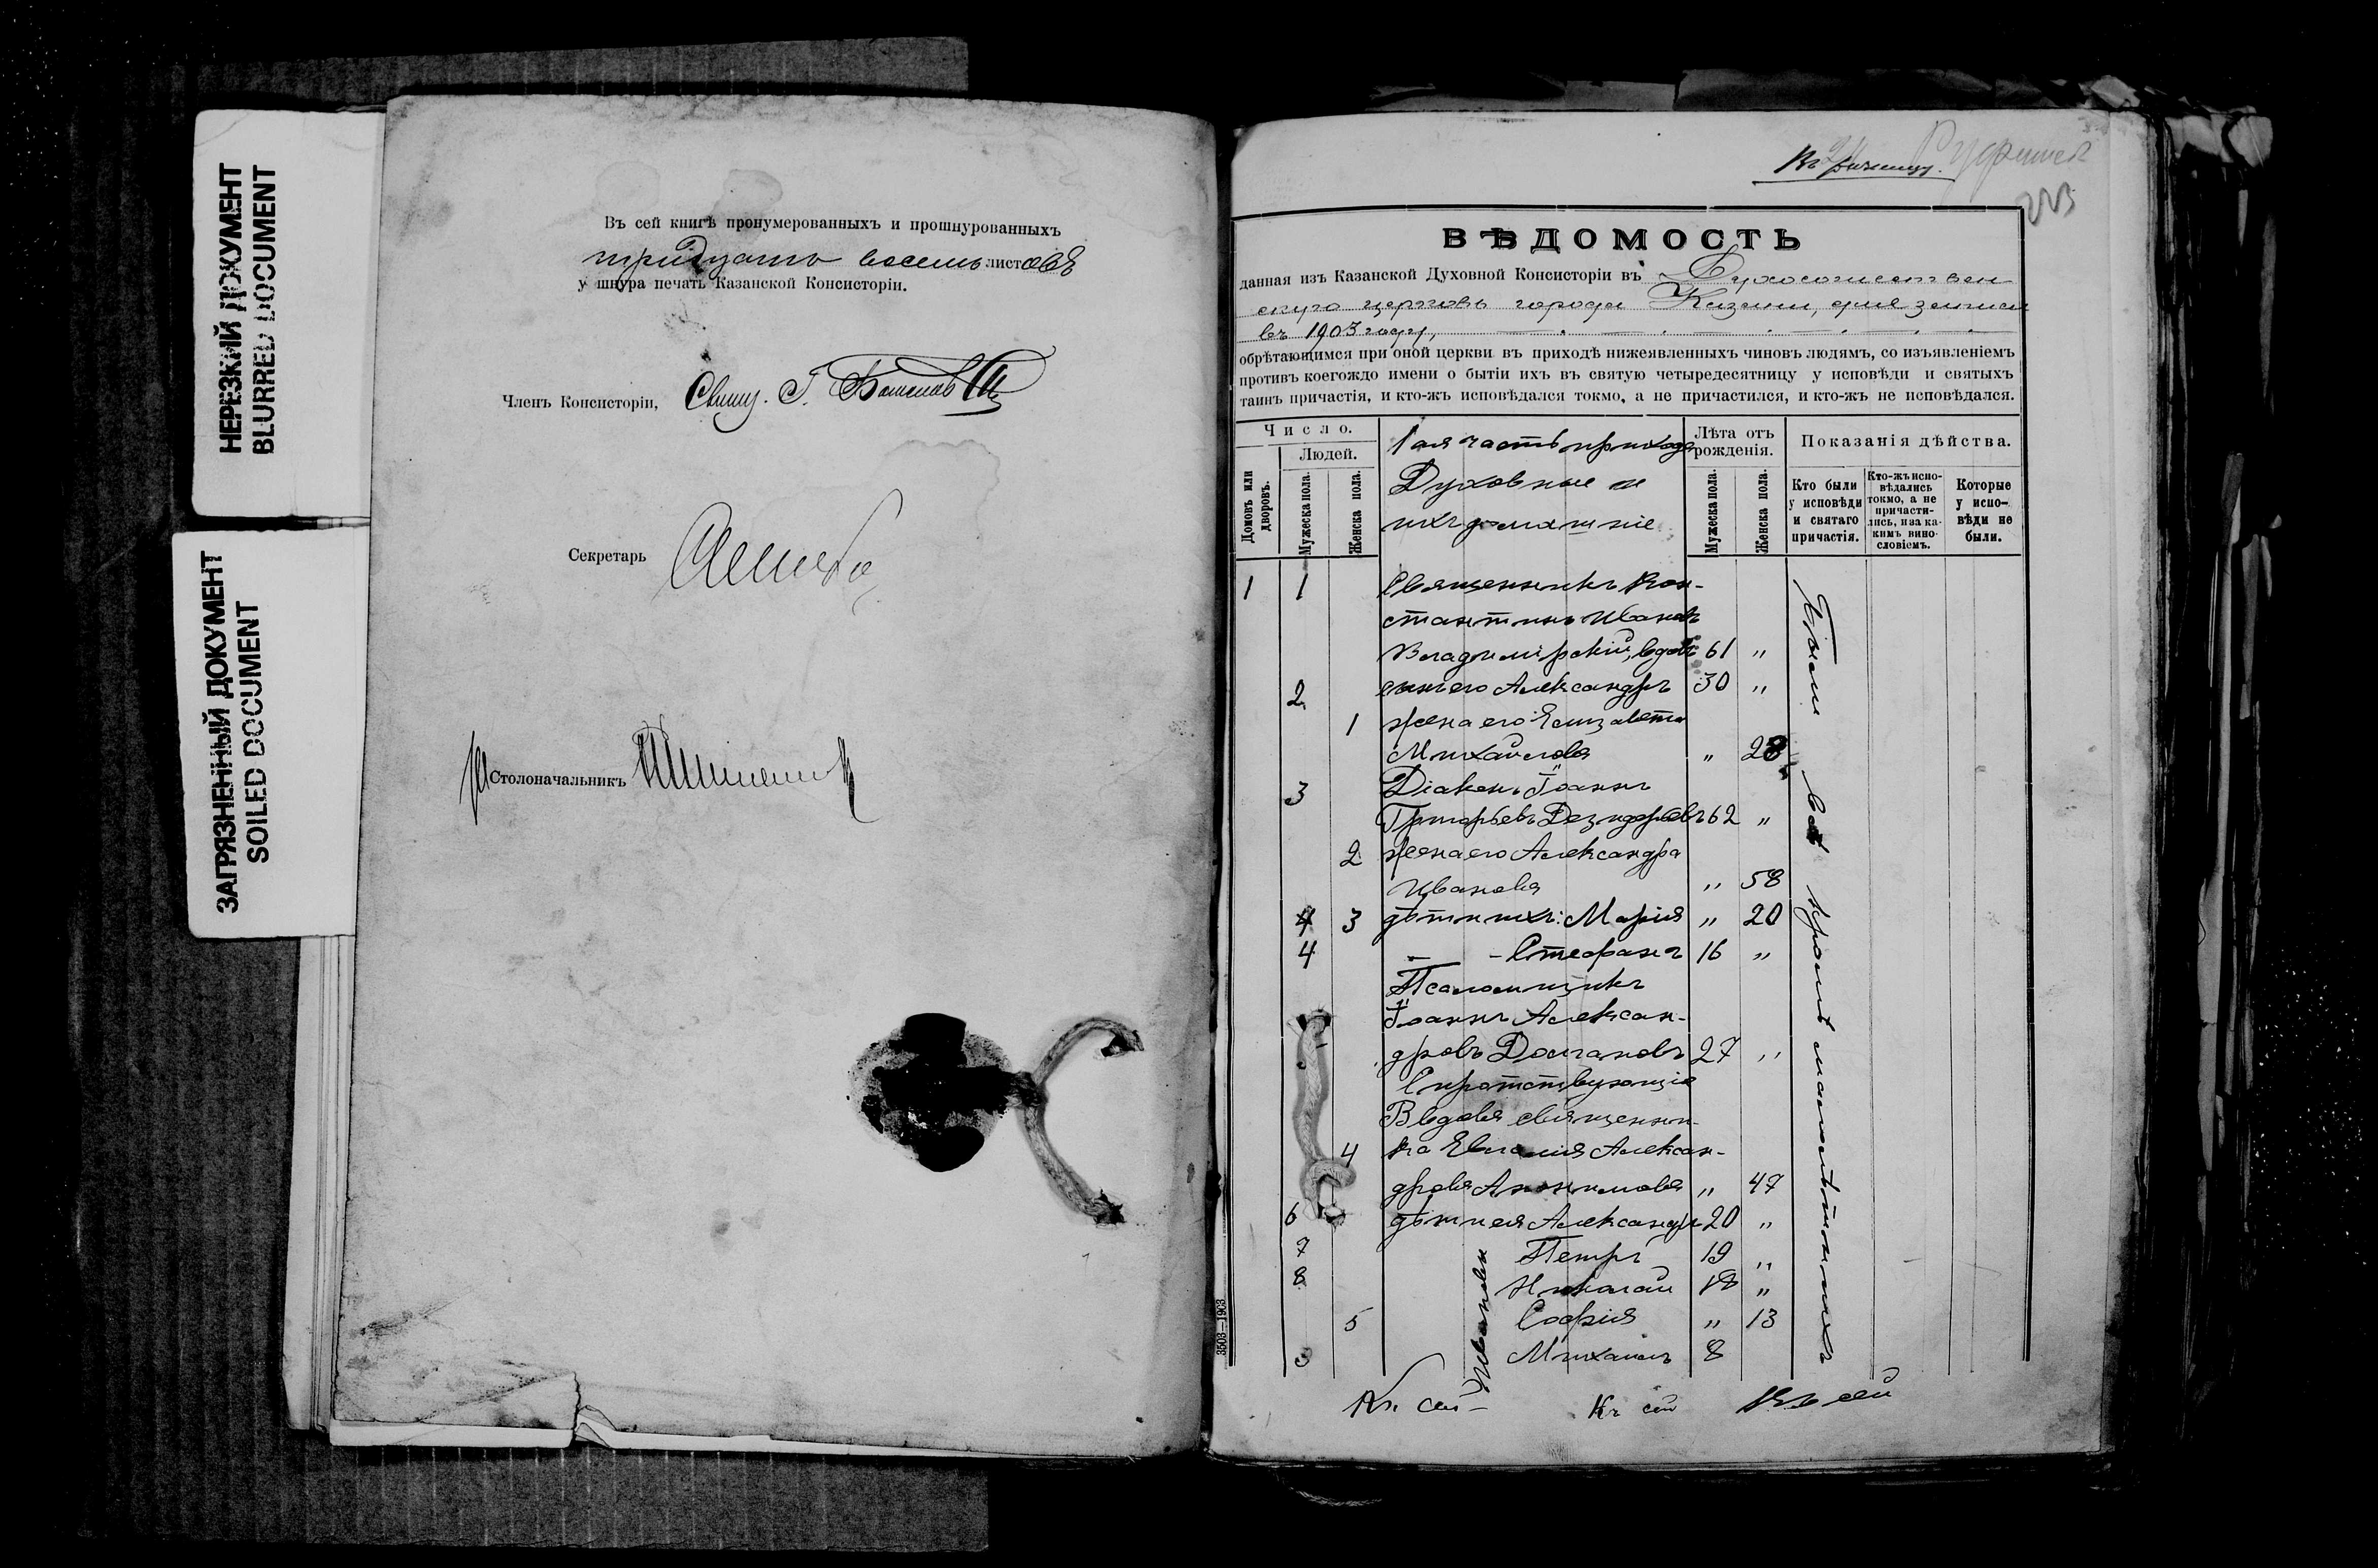 НЕРЕЗКИЙ ДОКУМЕНТ
BLURRED DOCUMENT
ЗАГРЯЗНЕННЫЙ ДОКУМЕНТ
SOILED DOCUMENT
Въ сей книгѣ пронумерованныхъ и прошнурованныхъ
тридцать восемь листовъ
у шнура печать Казанской Консисторіи.
Членъ Консисторіи, Свящ. Г.
Секретарь
Столоначальникъ
223
ВѢДОМОСТЬ
данная изъ Казанской Духовной Консисторіи въ Духосошествен
скую церковь города Казани, для записи
въ 1903 году,
обрѣтающимся при оной церкви въ приходѣ нижеявленныхъ чиновъ людямъ, со изъявленіемъ
противъ коегождо имени о бытіи ихъ въ святую четыредесятницу у исповѣди и святыхъ
таинъ причастія, и кто-жъ исповѣдался токмо, а не причастился, и кто-жъ не исповѣдался.
Число.
Домовъ или дворовъ.
Людей.
Мужеска пола.
Женска пола.
1ая часть прихода
Духовные и
ихъ домашніе
Лѣта отъ рожденія.
Мужеска пола.
Женска пола.
Показанія дѣйства.
Кто были у исповѣди и святаго причастія.
Кто-жъ исповѣдались токмо, а не причастились, и за какимъ винословіемъ.
Которые у исповѣди не были.
1 1 Священникъ Кон-
стантинъ Ивановъ
Владимірскій, вдовъ 61 "
2 сынъ его Александръ 30 "
1 жена его Елизавета
Михайлова " 28
3 Діаконъ Іоаннъ
Григорьевъ Дезидерьевъ 62 "
2 жена его Александра
Иванова " 58
4 3 дѣти ихъ: Марія " 20
4 - - Стефанъ 16 "
Псаломщикъ
Іоаннъ Алексан-
дровъ Долгановъ 27 "
Сиротствующіе
Вдова священни-
4 ка Евгенія Алексан-
дрова Анонимова " 47
6 дѣти ея Александръ 20 "
7 Петръ 19 "
8 Николай 18 "
5 Софія " 13
Михаилъ 8
Ивановы
Были всѣ кромѣ малолѣтнихъ
Къ сей
Къ сей
Къ сей
3503—1903